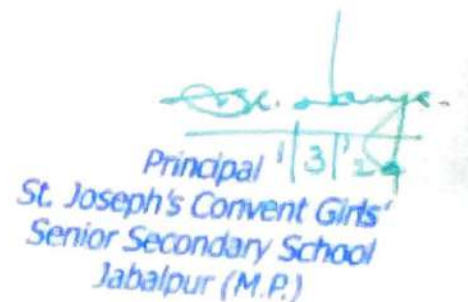 Principal 1/3/24
St. Joseph's Convent Girls'
Senior Secondary School
Jabalpur (M.P.)